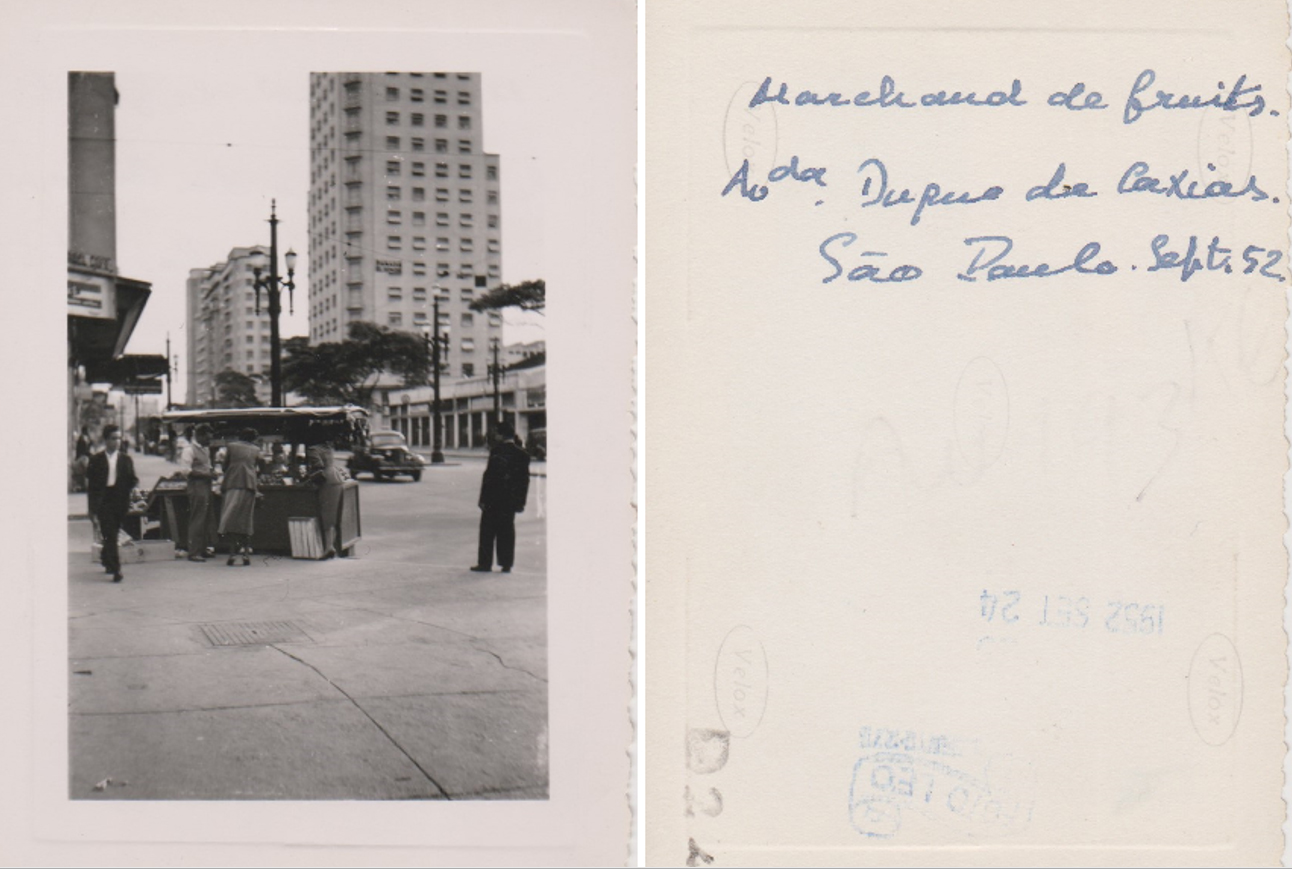 Marchand de fruits.
Avda. Duque de Caxias.
São Paulo. Sept. 52.
Velox
Velox
1952 SET 24
Velox
Velox
FOTO LEO
D24